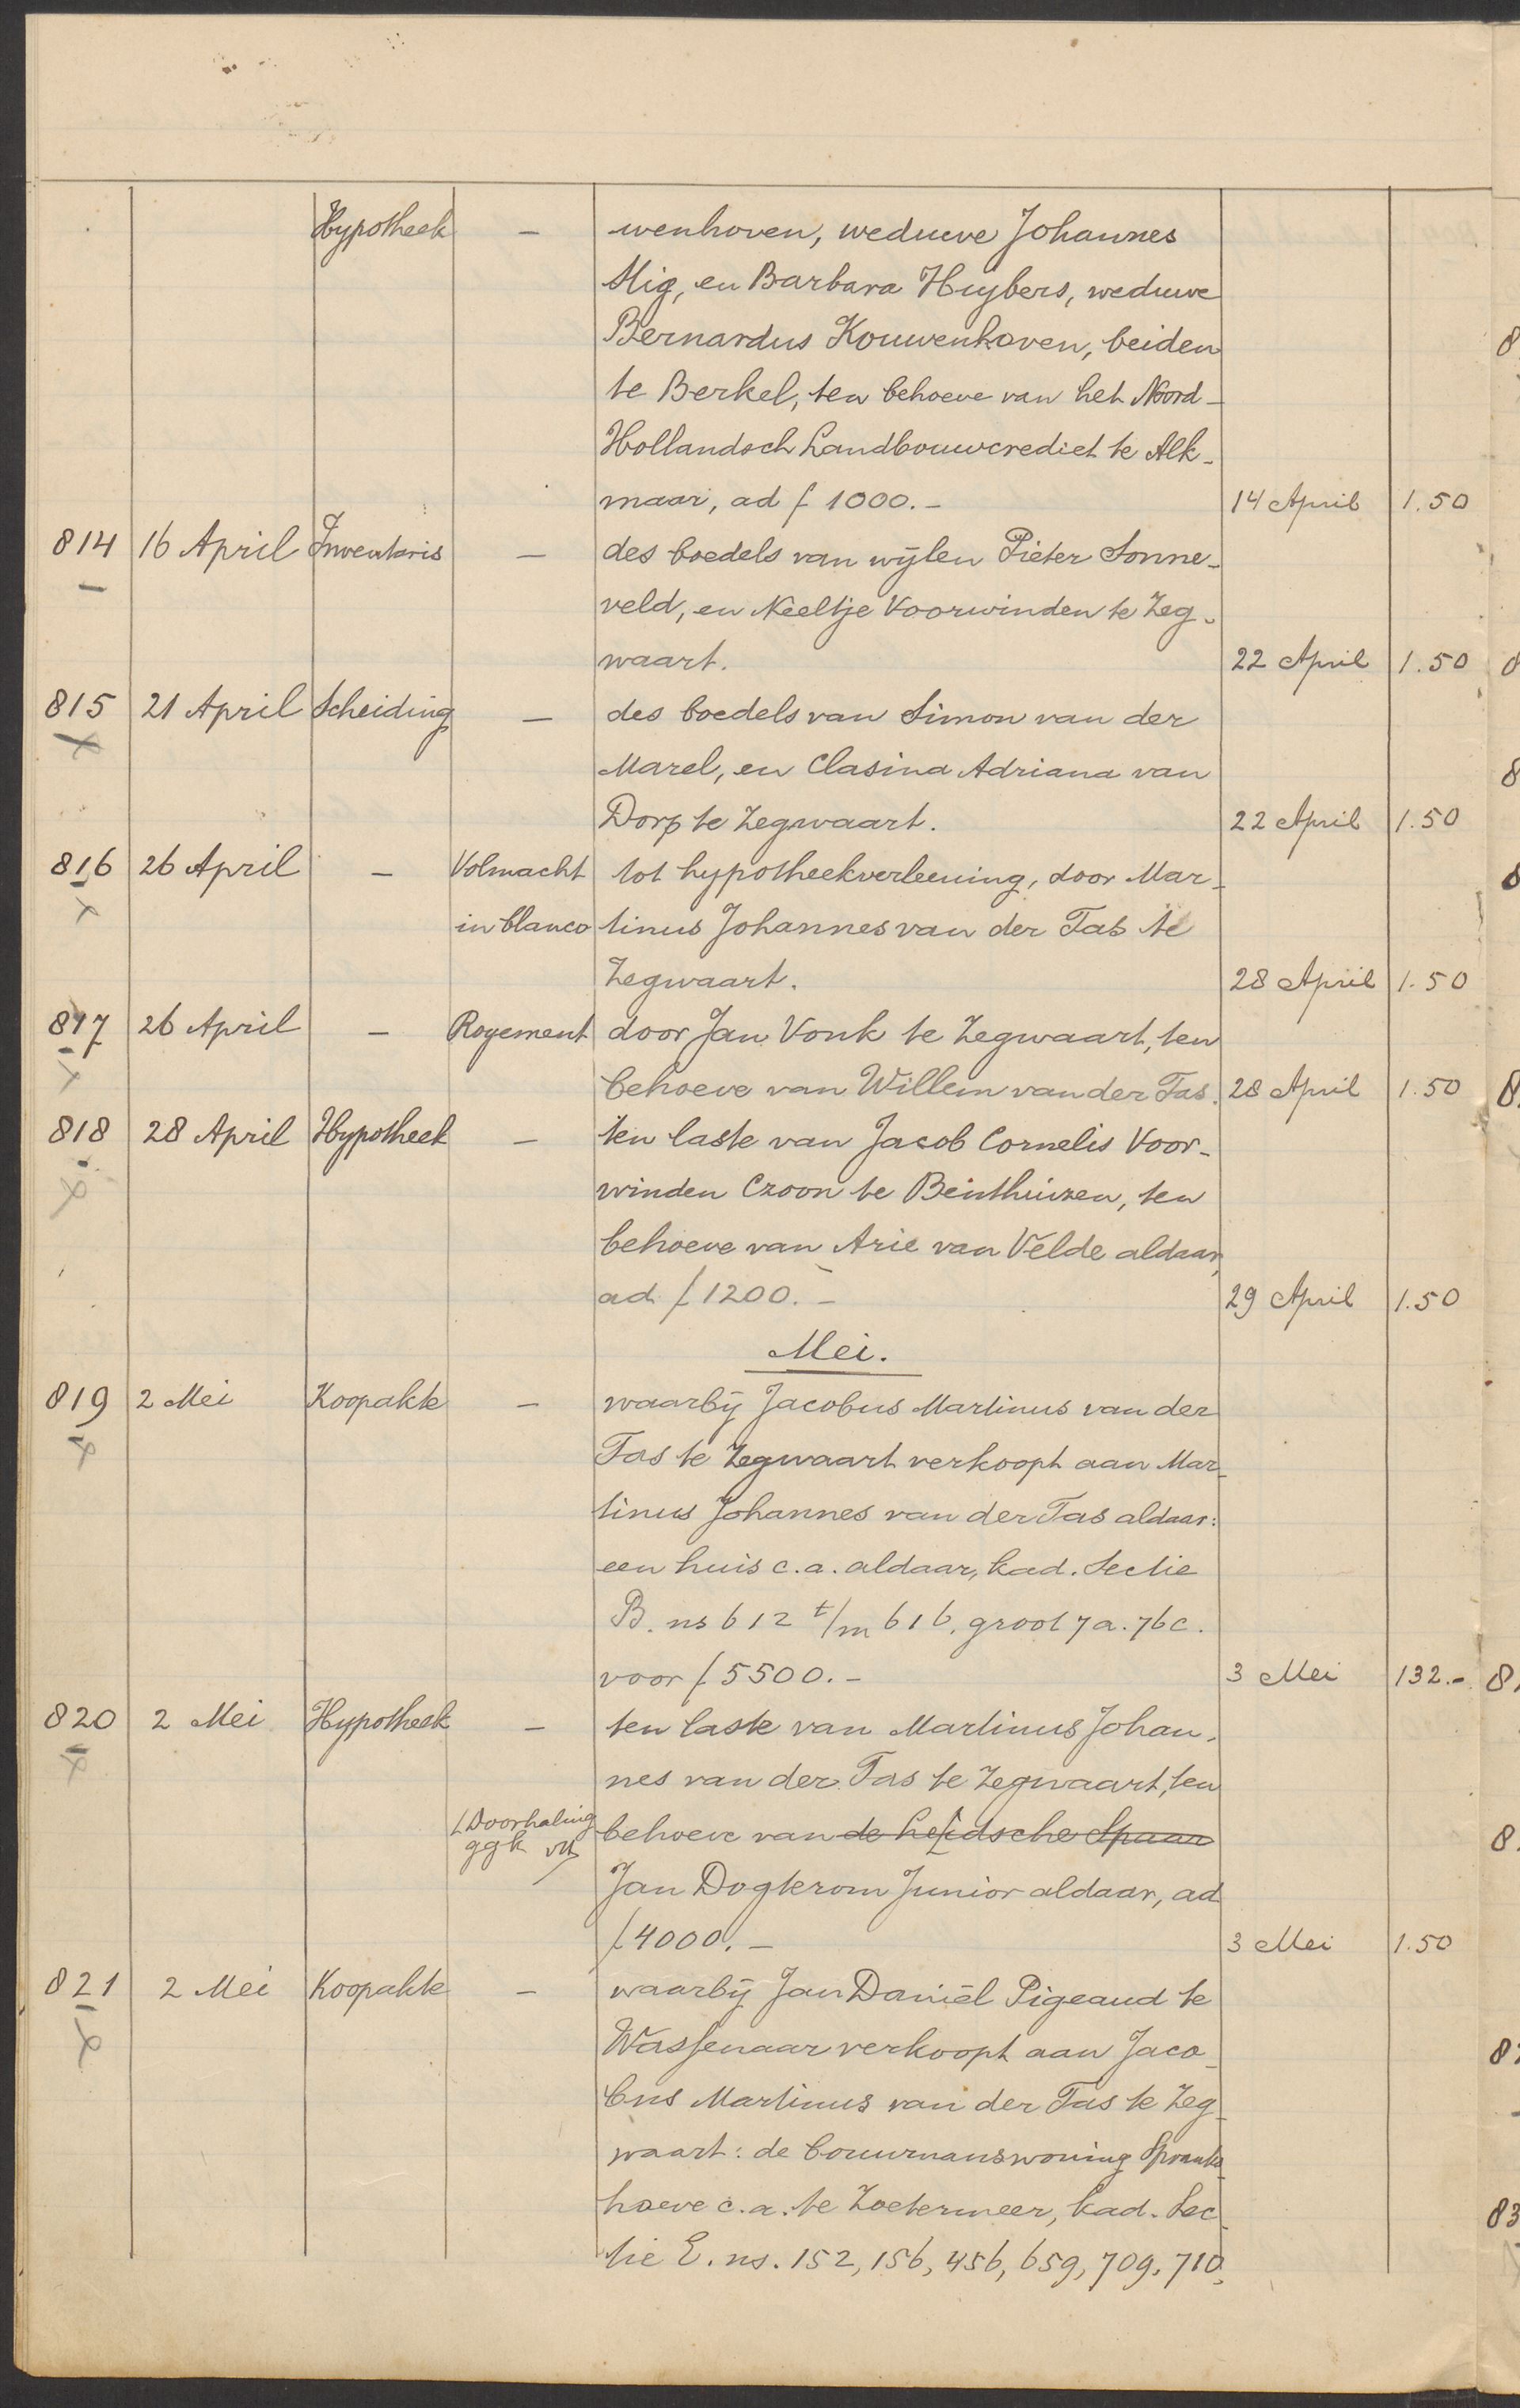 Hypotheek — wenhoven, weduwe Johannes
Slig, en Barbara Huybers, weduwe
Bernardus Kouwenhoven, beiden
te Berkel, ten behoeve van het Noord-
Hollandsch Landbouwcrediet te Alk-
maar, ad f 1000.- 14 April 1.50
814 16 April Inventaris — des boedels van wijlen Pieter Sonne-
veld, en Neeltje Voorwinden te Zeg-
waart. 22 April 1.50
815 21 April Scheiding — des boedels van Simon van der
Marel, en Clasina Adriana van
Dorp te Zegwaart. 22 April 1.50
816 26 April — Volmacht tot hypotheekverleening, door Mar-
in blanco tinus Johannes van der Tas te
Zegwaart. 28 April 1.50
817 26 April — Royement door Jan Vonk te Zegwaart, ten
behoeve van Willem van der Tas. 28 April 1.50
818 28 April Hypotheek — ten laste van Jacob Cornelis Voor-
winden Czoon te Benthuizen, ten
behoeve van Arie van Velde aldaar,
ad f 1200.- 29 April 1.50
Mei.
819 2 Mei Koopakte — waarbij Jacobus Martinus van der
Tas te Zegwaart verkoopt aan Mar-
tinus Johannes van der Tas aldaar:
een huis c.a. aldaar, kad. Sectie
B. ns 612 t/m 616, groot 7 a. 76 c.
voor f 5500.- 3 Mei 132.-
820 2 Mei Hypotheek — ten laste van Martinus Johan-
nes van der Tas te Zegwaart, ten
Doorhaling behoeve van de Leidsche Spaar
ggk
Jan Dogterom Junior aldaar, ad
f 4000.- 3 Mei 1.50
821 2 Mei Koopakte — waarbij Jan Daniël Pigeaud te
Wassenaar verkoopt aan Jaco-
bus Martinus van der Tas te Zeg-
waart: de bouwmanswoning
hoeve c.a. te Zoetermeer, kad. Sec-
tie E. ns. 152, 156, 456, 659, 709, 710,